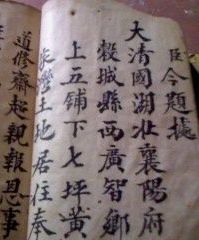 臣今題據
大清國湖北襄陽府
穀城縣西廣智鄉
上五鋪下七坪黄
家灣土地居住奉
道修齋起親報恩事